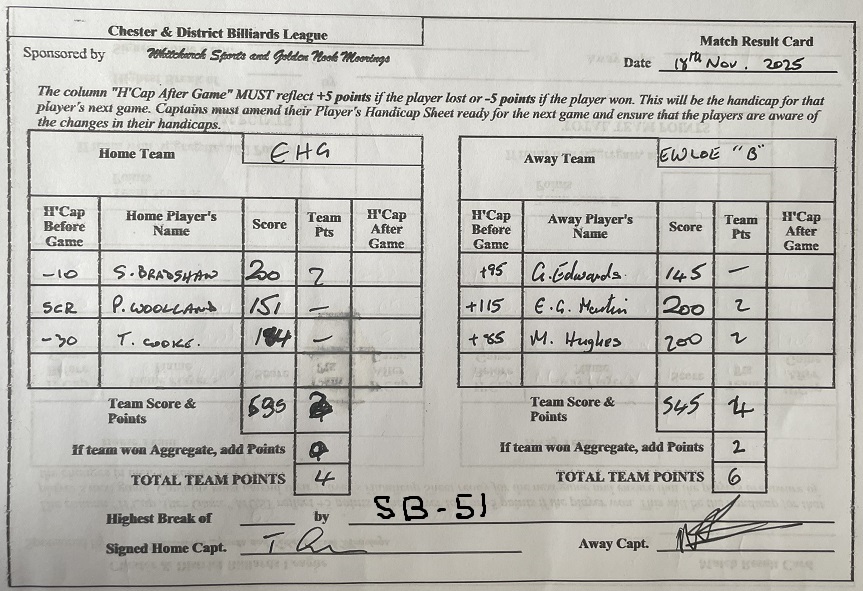 Chester & District Billiards League
Sponsored by Whitchurch Sports and Golden Nook Moorings
Match Result Card
Date 18th Nov. 2025
The column "H'Cap After Game" MUST reflect +5 points if the player lost or -5 points if the player won. This will be the handicap for that
player's next game. Captains must amend their Player's Handicap Sheet ready for the next game and ensure that the players are aware of
the changes in their handicaps.
Home Team EHG
H'Cap Before Game Home Player's Name Score Team Pts H'Cap After Game
-10 S. BRADSHAW 200 2
SCR P. WOOLLAND 151 —
-30 T. COOKE. 184 —
Team Score & Points
If team won Aggregate, add Points
TOTAL TEAM POINTS 4
Away Team EWLOE "B"
H'Cap Before Game Away Player's Name Score Team Pts H'Cap After Game
+95 G. Edwards. 145 —
+115 E.G. Martin 200 2
+85 M. Hughes 200 2
Team Score & Points 545 4
If team won Aggregate, add Points 2
TOTAL TEAM POINTS 6
Highest Break of by SB-51
Signed Home Capt.
Away Capt.